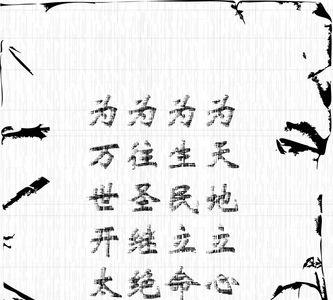 为天地立心
为生民立命
为往圣继绝
为万世开太